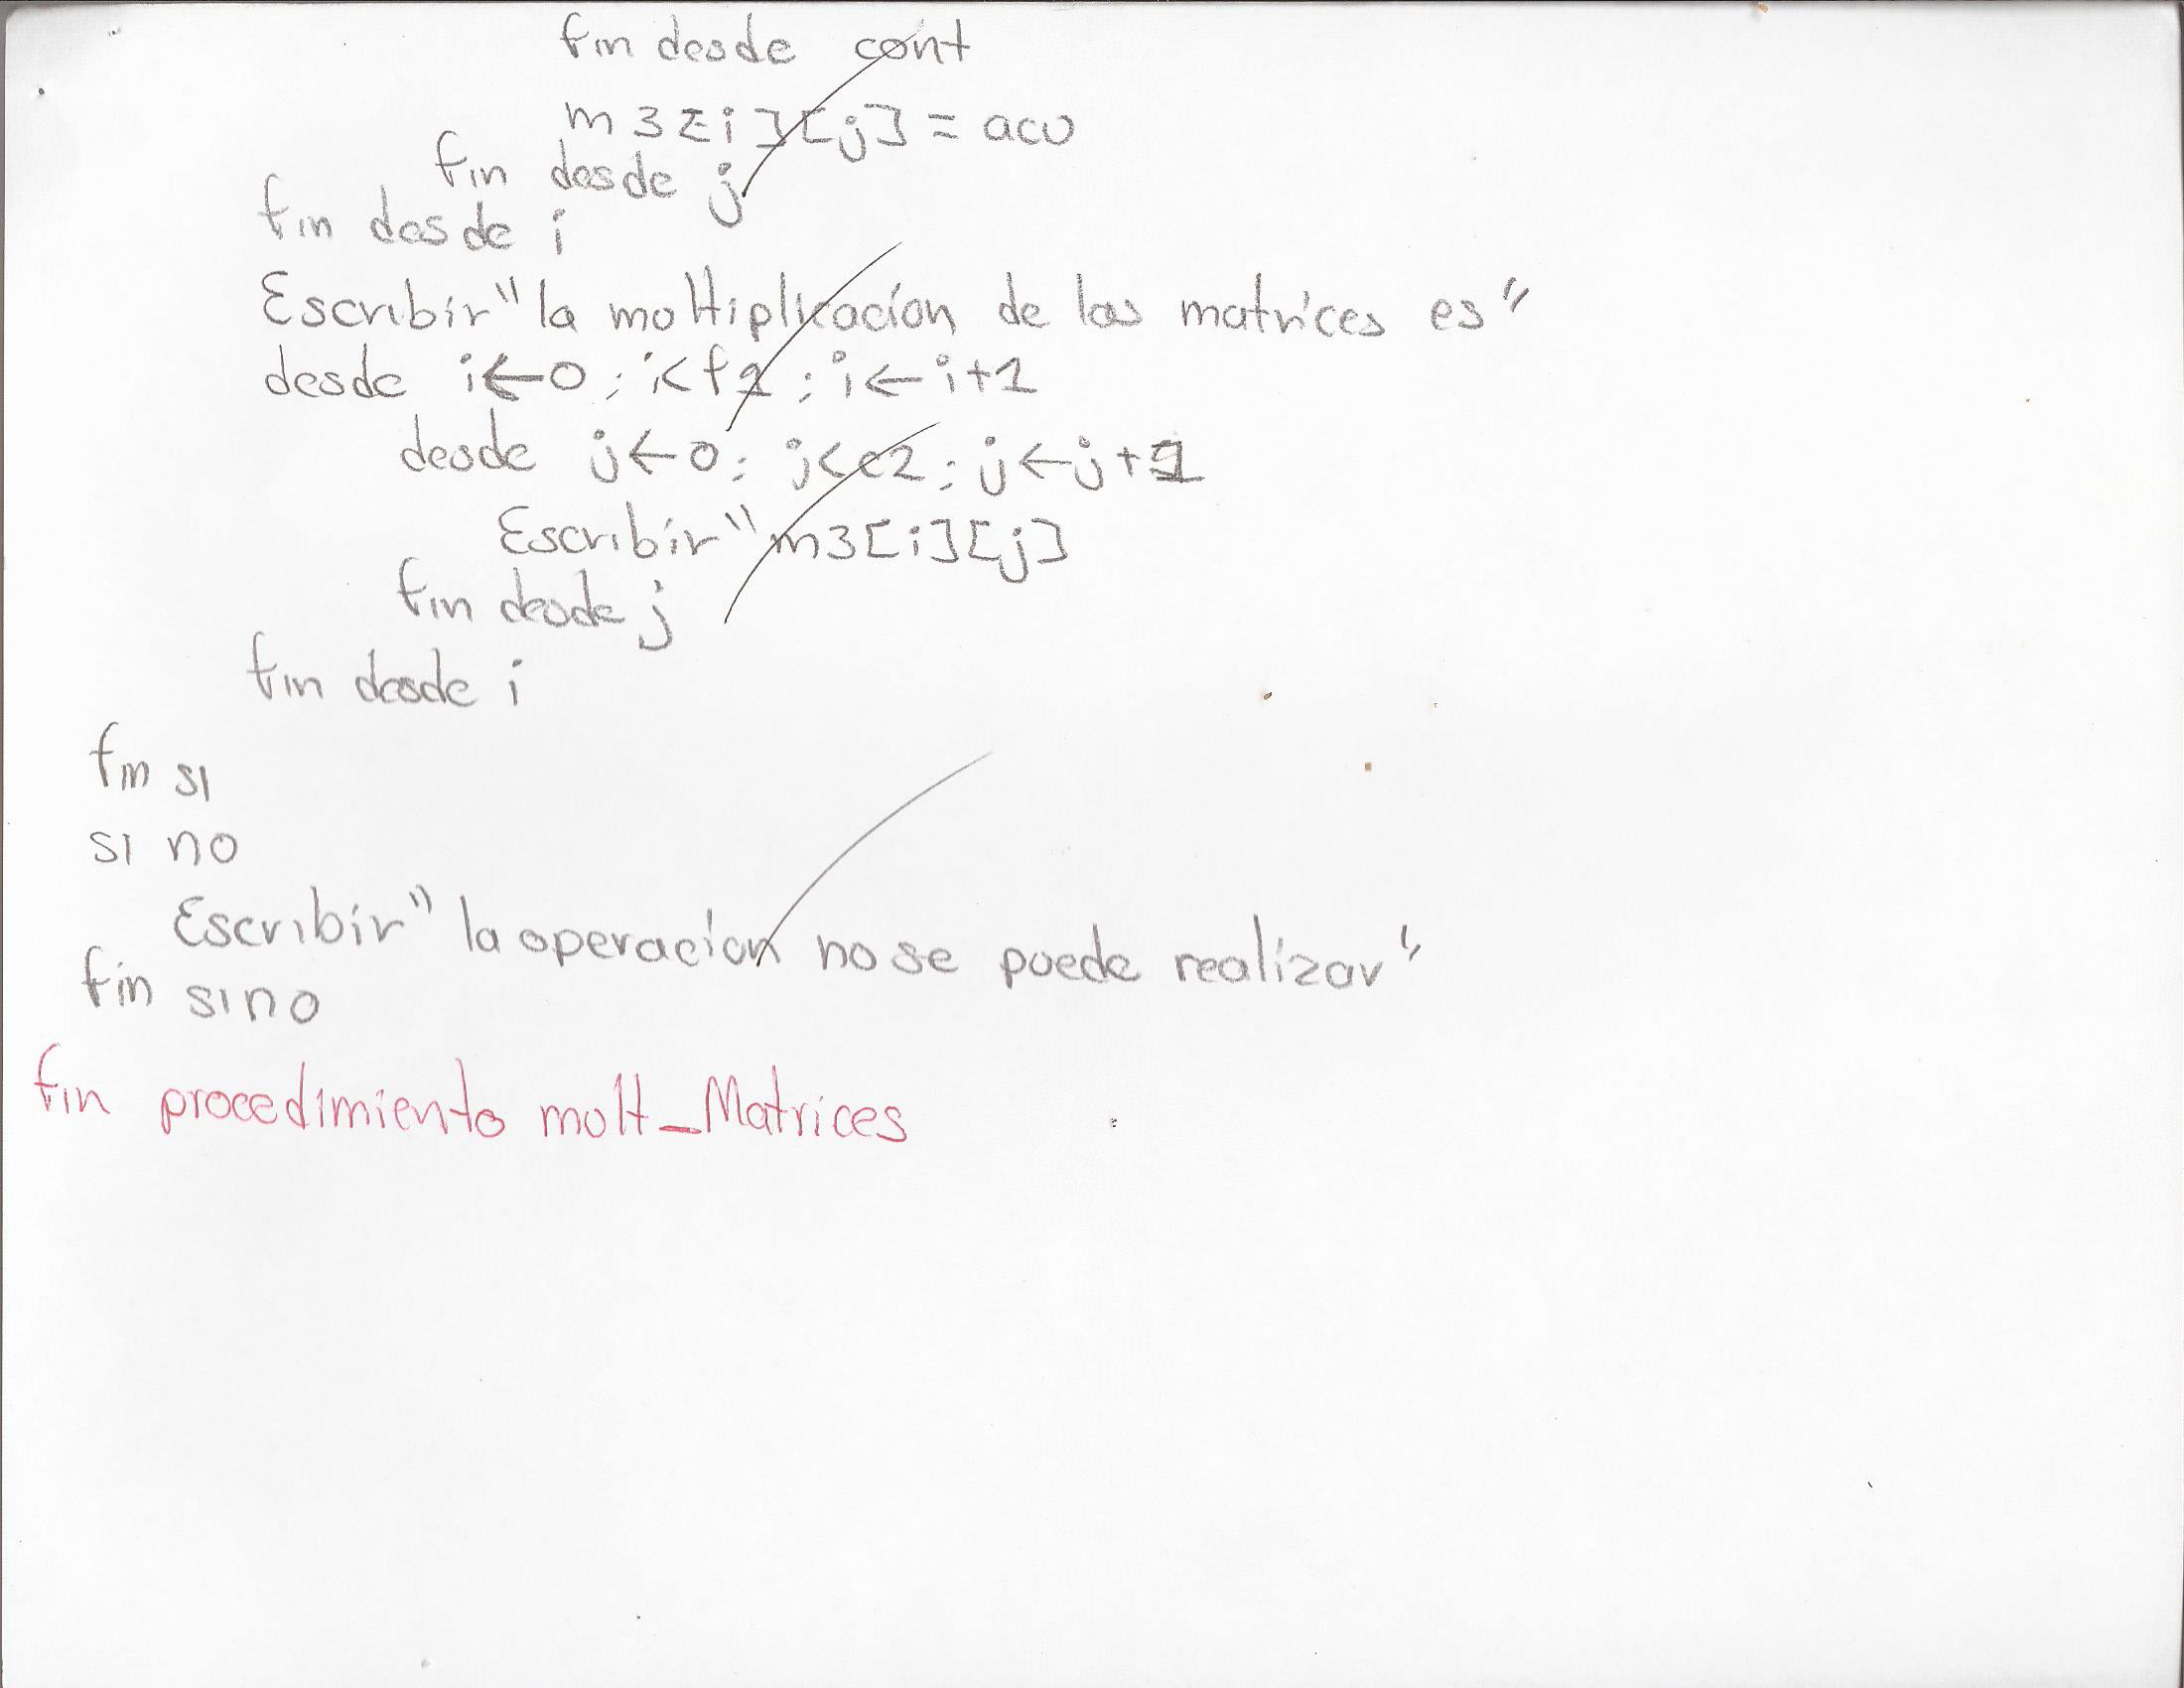 fin desde cont
m3[i][j] = acu
fin desde j
fin desde i
Escribir "la multiplicación de las matrices es"
desde i←0; i<f1; i←i+1
desde j←0; j<c2; j←j+1
Escribir "m3[i][j]
fin desde j
fin desde i
fin si
si no
Escribir "la operación no se puede realizar"
fin sino
fin procedimiento mult_Matrices